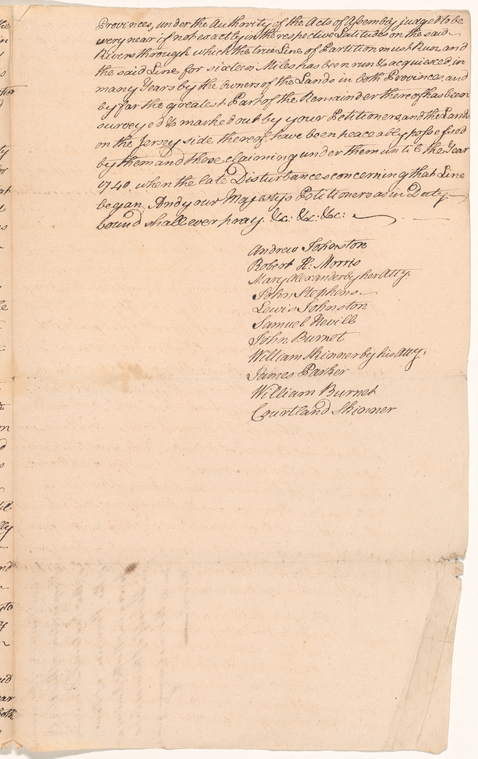 Provinces, under the Authority of the Acts of Assembly judged to be
very near if not exactly in the respective Latitudes on the said
Rivers thorough which the true Line of Partition must Run, and
the said Line for sixteen Miles has been run & acquiesced in
many Years by the owners of the Lands in both Provinces, and
by far the greatest Part of the Remainder thereof has been
surveyed & marked out by your Petitioners, and the Lands
on the Jersey side thereof have been peaceably possessed
by them and those claiming under them until the Year
1740, when the late Disturbances concerning that Line
began. And your Majestys Petitioners as in Duty
bound shall ever pray. &c: &c: &c:
Andrew Johnston
Robert H. Morris
Mary Alexander by her Atty.
John Stephens
Lewis Johnston
Samuel Nevill
John Burnet
William Skinner by his Atty.
James Parker
William Burnet
Courtland Skinner